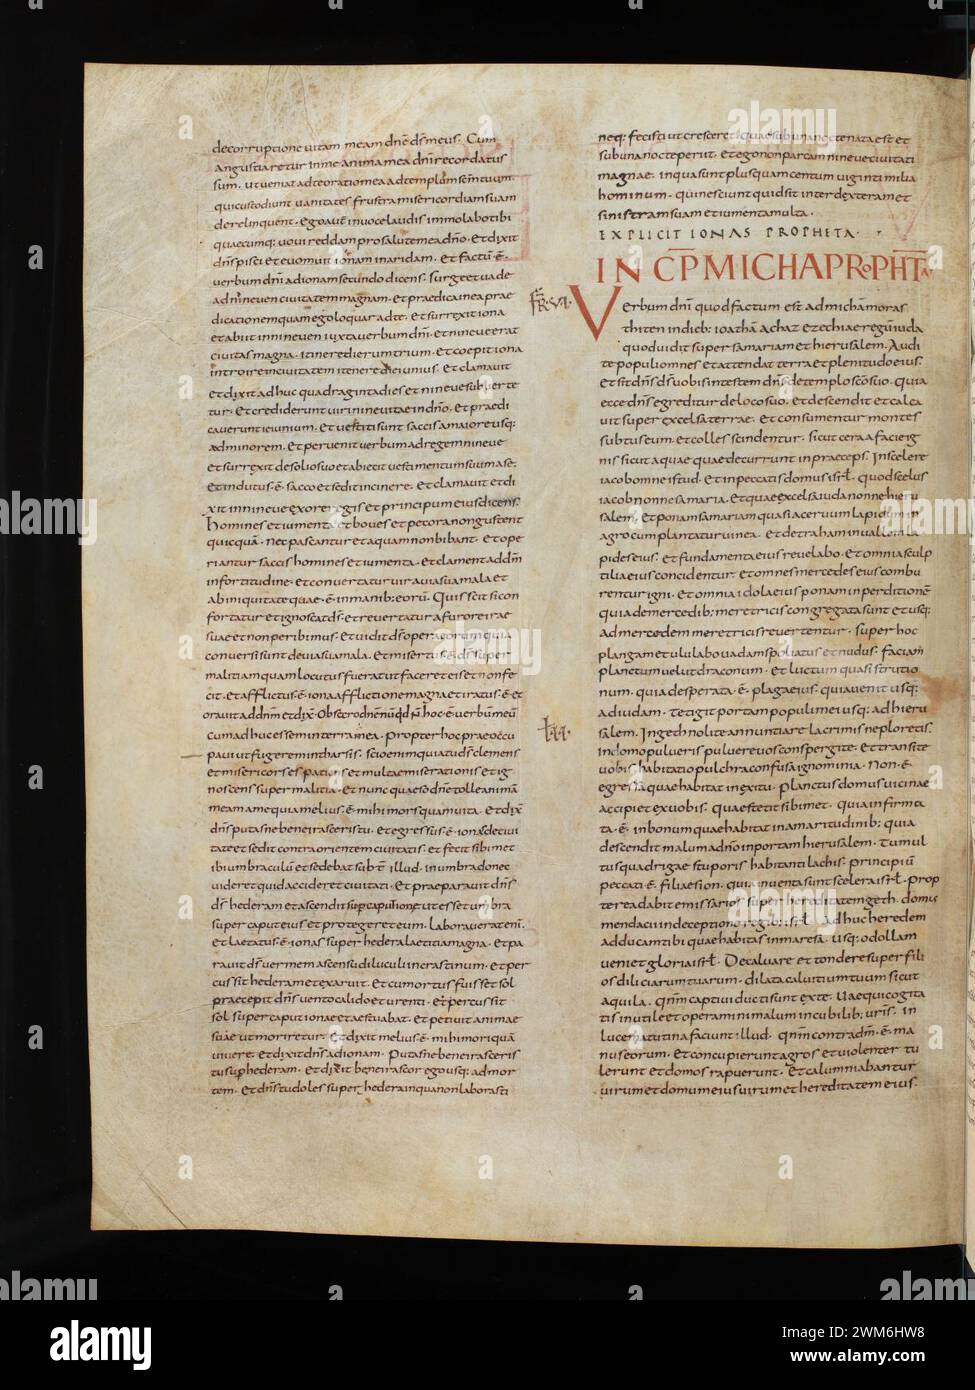 decorruptione vitam meam dn̄e ds̄ meus. Cum
angustiaretur inme anima mea dn̄i recordatus
sum. ut veniat adte oratio mea ad templū sc̄m tuum.
qui custodiunt vanitates frustra misericordiam suam
derelinquent. Ego autē invoce laudis immolabo tibi
quaecumq; vovi reddam pro salute mea dn̄o. Et dixit
dn̄s pisci et evomuit ionam inaridam. Et factū ē.
verbum dn̄i adionam secundo dicens. surge et vade
ad nineven civitatem magnam. et praedica inea prae
dicationem quam ego loquar adte. Et surrexit iona
et abiit innineven iuxta verbum dn̄i. et nineve erat
civitas magna. itinere dierum trium. Et coepit iona
introire incivitatem itenere diei unius. Et clamavit
et dixit adhuc quadraginta dies et nineve subverte
tur. Et crediderunt viri ninevitae indn̄o. Et praedi
caverunt ieiunium. et vestiti sunt saccis amaiore usq;
adminorem. Et pervenit verbum adregem nineve
et surrexit de solio suo et abiecit vestimentum suum ase.
et indutus. ē. sacco et sedit incinere. Et clamavit et di
xit innineve exore regis et principum eius dicens.
Homines et iumenta et boves et pecora non gustent
quicquā. Nec pascantur et aquam non bibant. Et ope
riantur saccis homines et iumenta. et clament addn̄m
infortitudine. Et convertatur vir avia sua mala et
ab iniquitate quae. ē. inmanib; eorū. Quis scit si con
vertatur et ignoscat ds̄. et revertatur afurore irae
suae et non peribimus. Et vidit ds̄ opera eorum quia
conversi sunt devia sua mala. Et misertus. ē. ds̄ super
malitiam quam locutus fuerat ut faceret eis et non fe
cit. Et afflictus. ē. iona afflictione magna et iratus. ē. et
oravit addn̄m et dix̄. Obsecro dn̄e nūquid n̄ hoc. ē. verbū meū
cum adhuc essem interra mea. Propter hoc praeoccu
pavi ut fugerem intharsis. scio enim quia tu ds̄ clemens
et misericors es patiens et multae miserationis et ig
noscens super malitia. Et nunc quaeso dn̄e tolle animā
meam ame quia melius. ē. mihi mors quam vita. Et dix̄
dn̄s putasne bene irasceris tu. Et egressus. ē. ionas de civi
tate et sedit contra orientem civitatis. et fecit sibimet
ibi umbraculū et sedebat subt̄ illud. inumbra donec
videret quid accideret civitati. Et praeparavit dn̄s
ds̄ hederam et ascendit sup caput ione ut esset umbra
super caput eius et protegeret eum. laboraverat eni.
Et laetatus. ē. ionas super hedera laetitia magna. Et pa
ravit ds̄ vermem ascensu diluculi incrastinum. et per
cussit hederam et exaruit. Et cum ortus fuisset sol
praecepit dn̄s vento calido et urenti. et percussit
sol super caput ionae et aestuabat. Et petivit animae
suae ut moriretur. Et dixit melius. ē. mihi mori quā
vivere. Et dixit dn̄s adionam. Putasne bene irasceris
tu sup hederam. Et dixit bene irascor ego usq; ad mor
tem. Et dn̄s tu doles super hedera inqua non laborasti
neq; fecisti ut cresceret quae sub una nocte nata est et
sub una nocte periit. Et ego non parcam nineve civitati
magnae. inqua sunt plus quam centum viginti milia
hominum. qui nesciunt quid sit inter dexteram et
sinistram suam et iumenta multa.
EXPLICIT IONAS PROPHETA.
INCP̄ MICHA PROPHTA
Verbum dn̄i quod factum est ad micham moras
thiten indieb; ioatha Achaz Ezechiae regū iuda
quod vidit super samariam et hierusalem. Audi
te populi omnes et attendat terra et plenitudo eius.
et sit dn̄s ds̄ vobis intestem dn̄s de templo sc̄o suo. Quia
ecce dn̄s egreditur de loco suo. Et descendit et calca
vit super excelsa terrae. Et consumentur montes
subtus eum. et colles scindentur. sicut cera a facie ig
nis sicut aquae quae decurrunt inpraeceps. Inscelere
iacob omne istud. Et inpeccatis domus isrl̄. quod scelus
iacob nonne samaria. Et quae excelsa iuda nonne hieru
salem. Et ponam samariam quasi acervum lapidum in
agro cum plantatur vinea. et detraham invallem la
pides eius. et fundamenta eius revelabo. Et omnia sculp
tilia eius concidentur. et omnes mercedes eius combu
rentur igni. Et omnia idola eius ponam inperditionē
quia demercedib; meretricis congregata sunt et usq;
admercedem meretricis revertentur. super hoc
plangam et ululabo vadam spoliatus et nudus. faciam
planctum velut draconum. Et luctum quasi strutio
num. quia desperata. ē. plaga eius. quia venit usq;
ad iudam. Tetigit portam populi mei usq; ad hieru
salem. Ingeth nolite annuntiare lacrimis ne ploretis.
Indomo pulveris pulvere vos conspergite. et transite
vobis habitatio pulchra confusa ignominia. Non. ē.
egressa quae habitat inexitu. Planctus domus vicinae
accipiet exvobis. quae stetit sibimet. quia infirma
ta. ē. inbonum quae habitat inamaritudinib; quia
descendit malum adn̄o inportam hierusalem. Tumul
tus quadrigae stuporis habitanti lachis. principiū
peccati. ē. filiae sion. quia inventa sunt scelera isrl̄. Prop
terea dabit emissarios super hereditatem geth. domus
mendacii indeceptione regib; isrl̄. Adhuc heredem
adducam tibi quae habitas inmaresa. Usq; odollam
veniet gloria isrl̄. Decalvare et tondere super fili
os diliciarum tuarum. dilata calvitium tuum sicut
aquila. qn̄m captivi ducti sunt exte. Vae qui cogita
tis inutile et operamini malum incubilib; vrīs. in
luce matutina faciunt illud. qn̄m contra dm̄. ē. ma
nus eorum. Et concupierunt agros et violenter tu
lerunt et domos rapuerunt. Et calumniabantur
virum et domum eius virum et hereditatem eius.
alamy
Image ID: 2WM6HW8
www.alamy.com